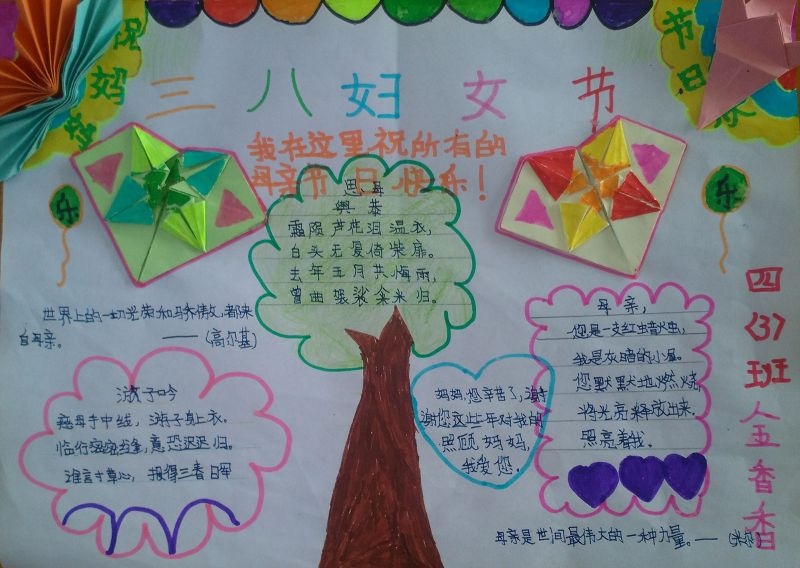 祝妈
节日
三八妇女节
我在这里祝所有的
母亲节日快乐!
乐
乐
思母
舆恭
霜陨芦花泪温衣,
白头无爱倚柴扉。
去年五月共悔雨,
曾曲袈裟籴米归。
世界上的一切光荣和骄傲,都来
自母亲。——(高尔基)
游子吟
慈母手中线,游子身上衣。
临行密密缝,意恐迟迟归。
谁言寸草心,报得三春晖
妈妈,您辛苦了,谢
谢您这些年对我的
照顾,妈妈,
我爱您。
母亲,
您是一支红蜡烛,
我是灰暗的小屋。
您默默地燃烧,
将光亮释放出来,
照亮着我.
母亲是世间最伟大的一种力量。——(米尔)
四(3)班金香香